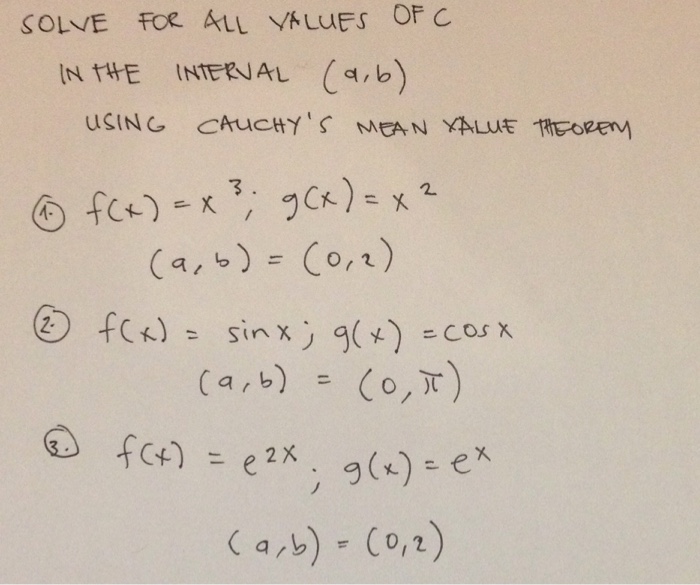 SOLVE FOR ALL VALUES OF C
IN THE INTERVAL (a,b)
USING CAUCHY'S MEAN VALUE THEOREM
1. f(x) = x³; g(x) = x²
(a,b) = (0,2)
2. f(x) = sinx; g(x) = cosx
(a,b) = (0,π)
3. f(x) = e²ˣ; g(x) = eˣ
(a,b) = (0,2)